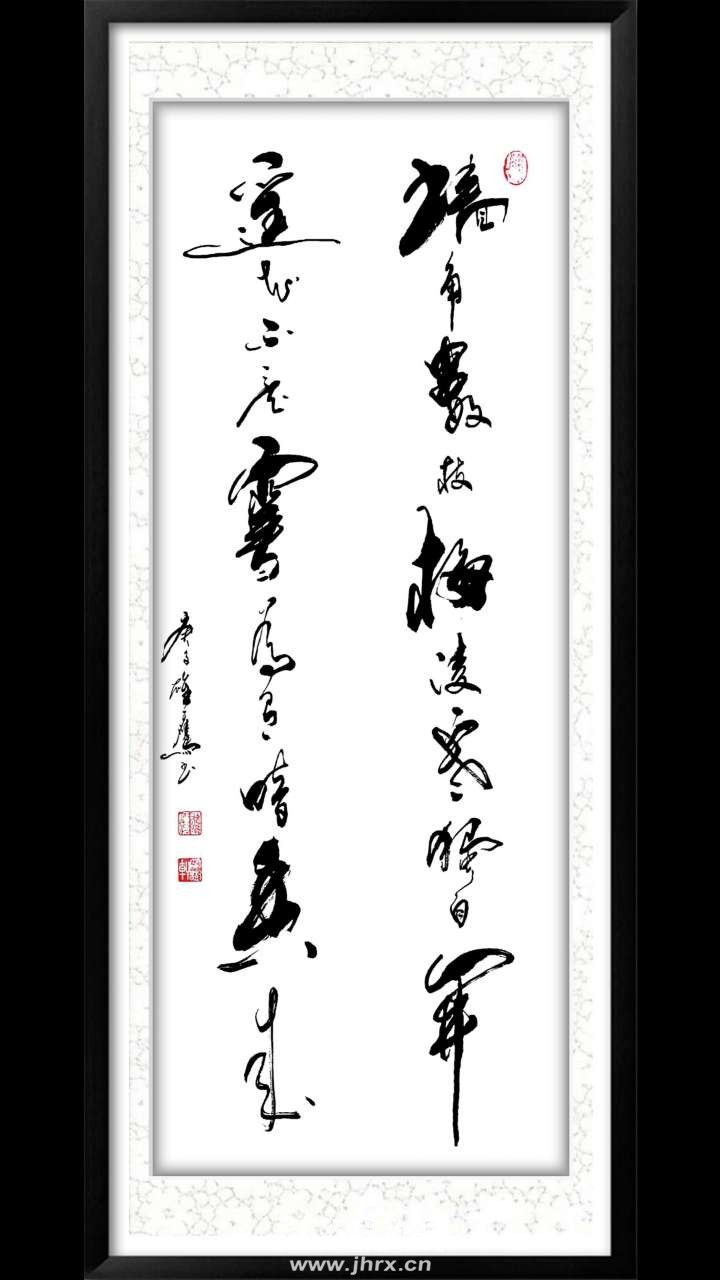 墙角數枝梅凌寒獨自開
遥知不是雪為有暗香来
庚子雄鷹书
www.jhrx.cn